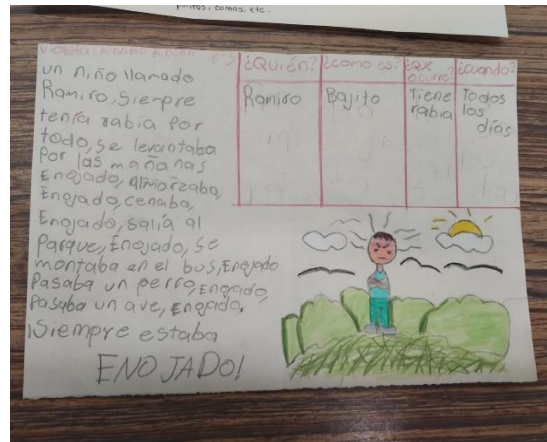 puntos, comas, etc.
un niño llamado
Ramiro, Siempre
tenía rabia por
todo, se levantaba
por las mañanas
Enojado, Almorzaba,
Enojado, cenaba,
Enojado, salía al
Parque, Enojado, se
montaba en el bus, Enojado
Pasaba un perro, Enojado,
Pasaba un ave, Enojado,
¡Siempre estaba
ENOJADO!
¿Quién? ¿como es? ¿que ocurre? ¿cuando?
Ramiro Bajito Tiene rabia Todos los días